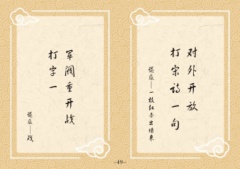 对外开放
打宋诗一句
谜底——一枝红杏出墙来
军阀重开战
打字一
谜底——战
-49-